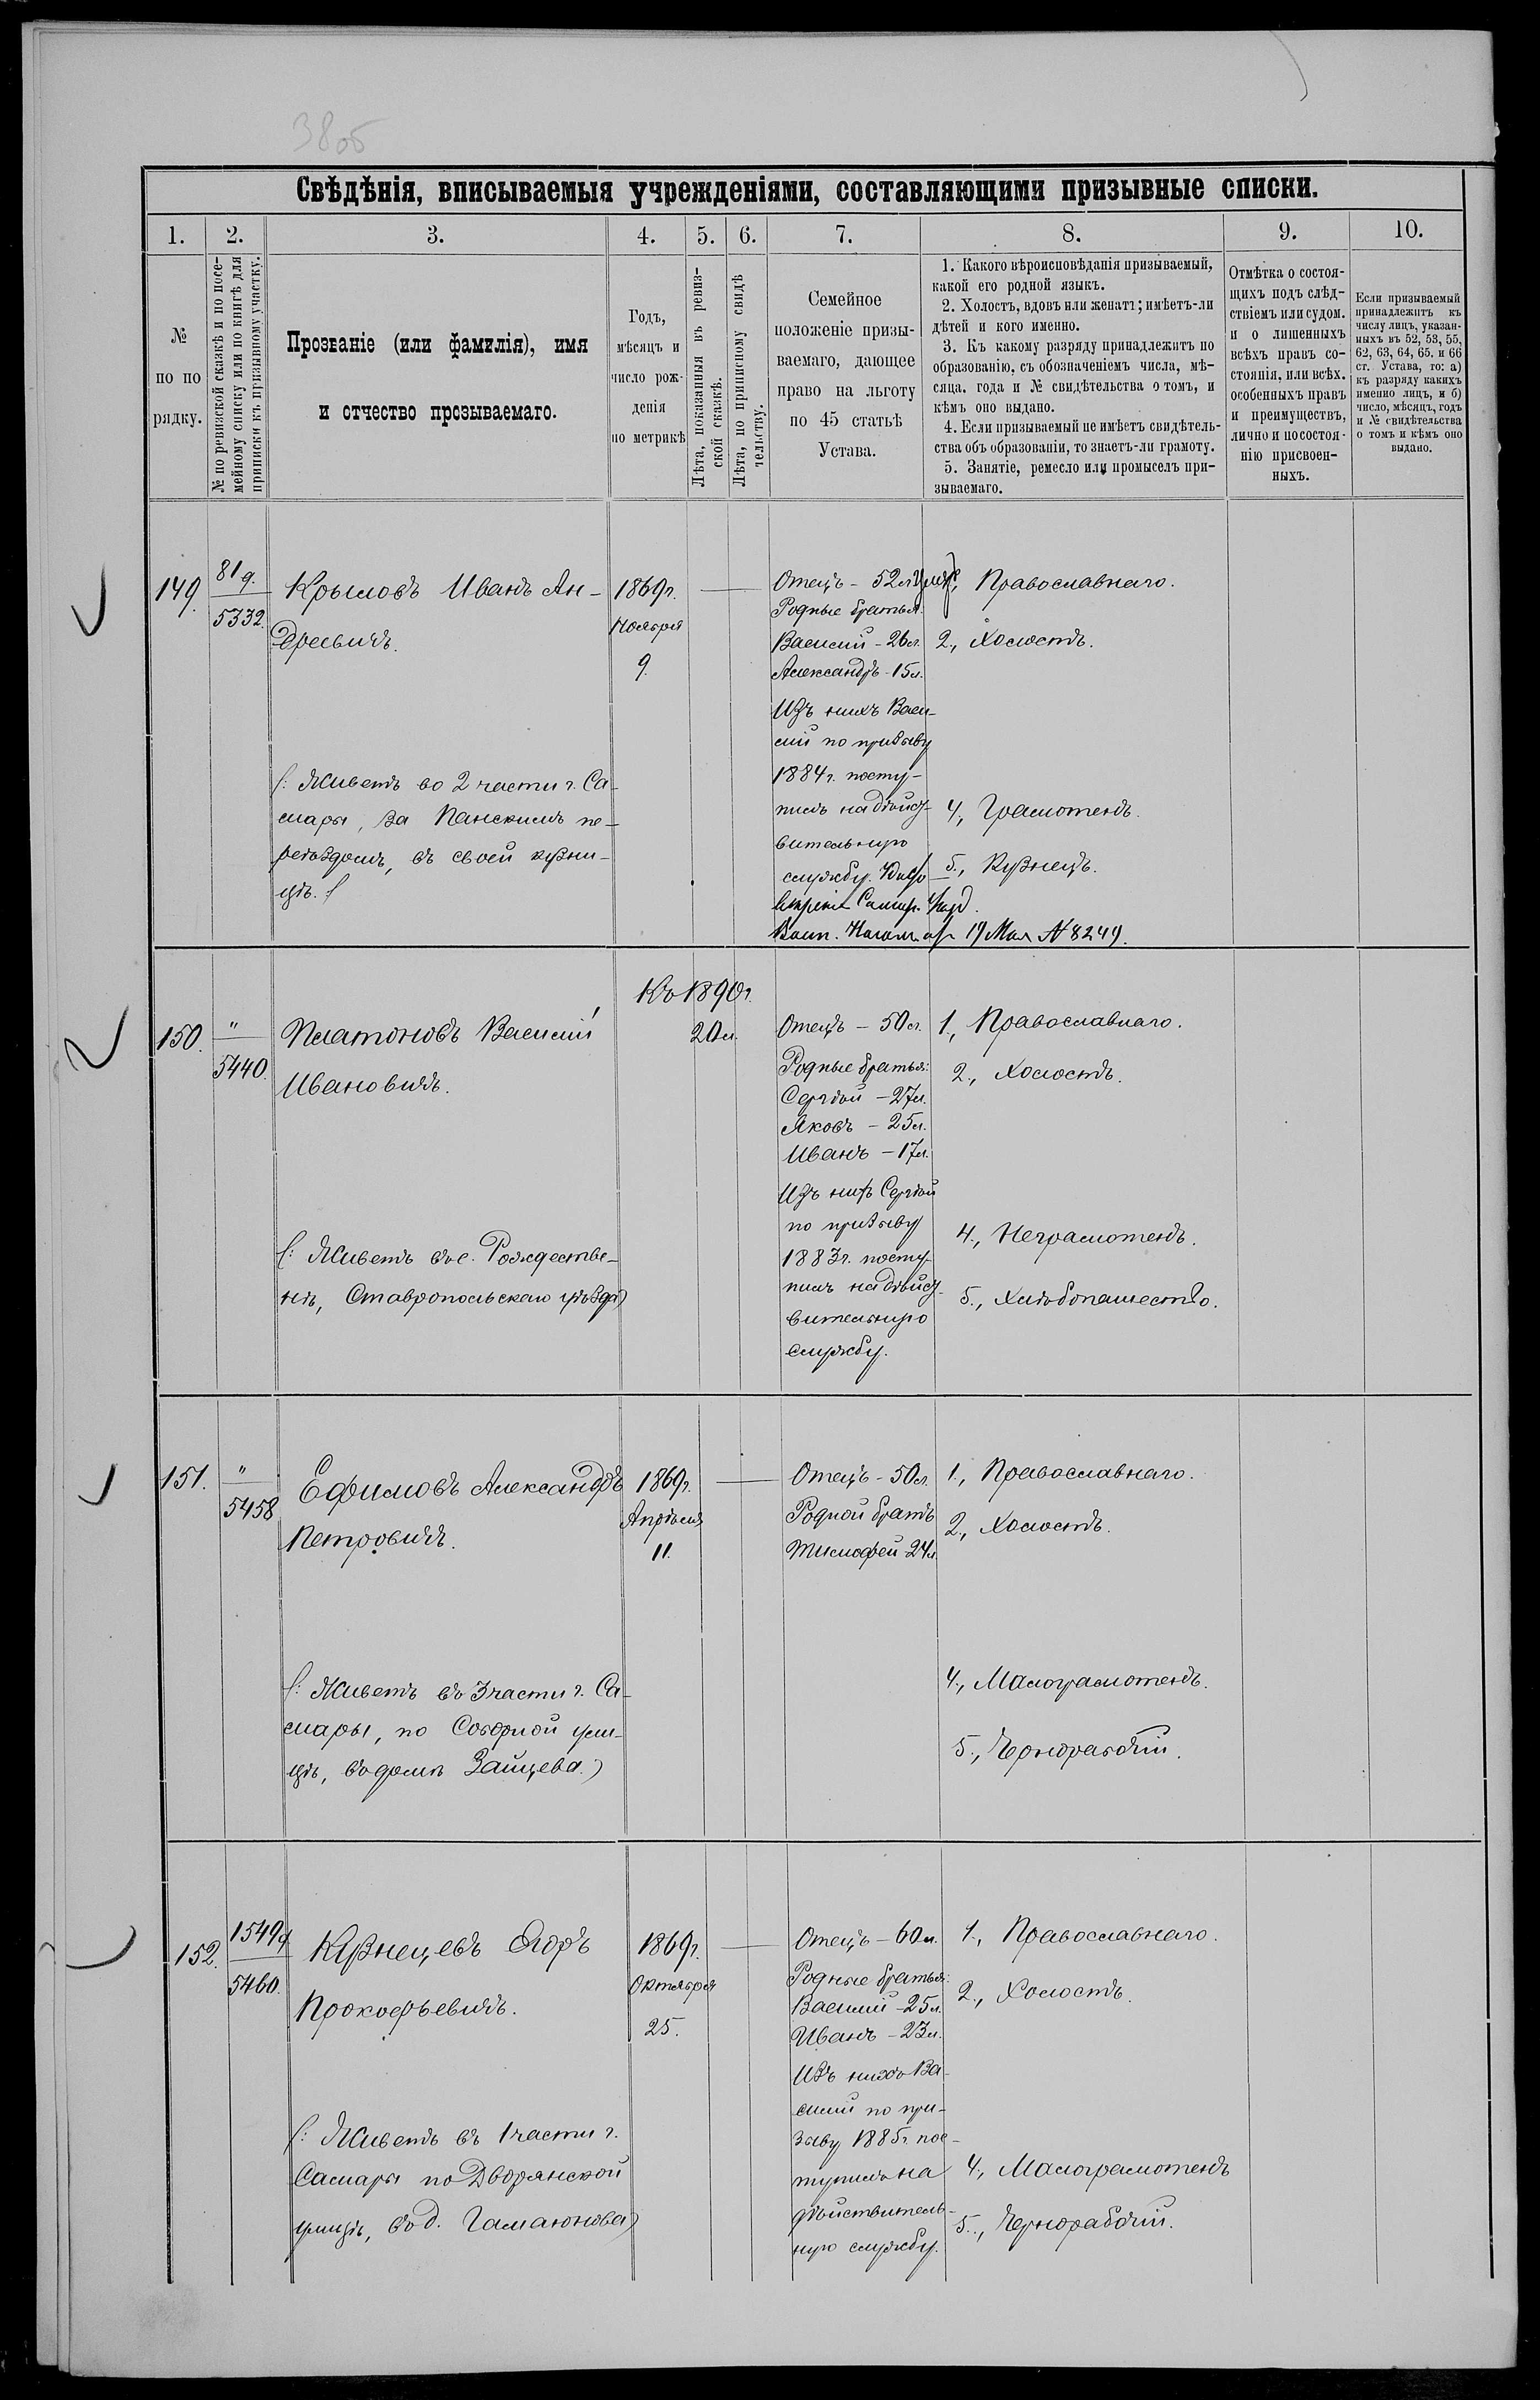 38об
Свѣдѣнія, вписываемыя учрежденіями, составляющими призывные списки.
1. 2. 3. 4. 5. 6. 7. 8. 9. 10.
№
по по
рядку.
№ по ревизской сказкѣ и по посе-
мейному списку или по книгѣ для
приписки къ призывному участку.
Прозваніе (или фамилія), имя
и отчество прозываемаго.
Годъ,
мѣсяцъ и
число рож-
денія
по метрикѣ
Лѣта, показанныя въ ревиз-
ской сказкѣ.
Лѣта, по приписному свидѣ
тельству.
Семейное
положеніе призы-
ваемаго, дающее
право на льготу
по 45 статьѣ
Устава.
1. Какого вѣроисповѣданія призываемый,
какой его родной языкъ.
2. Холостъ, вдовъ или женатъ; имѣетъ-ли
дѣтей и кого именно.
3. Къ какому разряду принадлежитъ по
образованію, съ обозначеніемъ числа, мѣ-
сяца, года и № свидѣтельства о томъ, и
кѣмъ оно выдано.
4. Если призываемый не имѣетъ свидѣтель-
ства объ образованіи, то знаетъ-ли грамоту.
5. Занятіе, ремесло или промыселъ при-
зываемаго.
Отмѣтка о состоя-
щихъ подъ слѣд-
ствіемъ или судом.
и о лишенныхъ
всѣхъ правъ со-
стоянія, или всѣх.
особенныхъ правъ
и преимуществъ,
лично и по состоя-
нію присвоен-
ныхъ.
Если призываемый
принадлежитъ къ
числу лицъ, указан-
ныхъ въ 52, 53, 55,
62, 63, 64, 65. и 66
ст. Устава, то: а)
къ разряду какихъ
именно лицъ, и б)
число, мѣсяцъ, годъ
и № свидѣтельства
о томъ и кѣмъ оно
выдано.
149.
81 д.
5332.
Крыловъ Иванъ Ан-
дреевичъ.
(: Живетъ во 2 части г. Са-
мары, за Панскимъ пе-
реѣздомъ, въ своей кузни-
цѣ.
1869г.
Ноября
9.
Отецъ – 52л.
Родные братья:
Василій – 26л.
Александръ – 15л.
Изъ нихъ Васи-
лій по призыву
1884г. посту-
пилъ на дѣйст-
вительную
службу.
Воин. Начал. от 19 Мая № 8249.
Православнаго.
2., Холостъ.
4., Грамотенъ.
5., Кузнецъ.
150.
"
5440.
Платоновъ Василій
Ивановичъ.
(: Живетъ въ с. Рождестве-
нѣ, Ставропольскаго уѣзда)
Къ 1890г.
20л.
Отецъ – 50л.
Родные братья:
Сергѣй – 27л.
Яковъ – 25л.
Иванъ – 17л.
Изъ нихъ Сергѣй
по призыву
1883г. посту-
пилъ на дѣйст-
вительную
службу.
1., Православнаго.
2., Холостъ.
4., Неграмотенъ.
5., Хлѣбопашество.
151.
"
5458
Ефимовъ Александръ
Петровичъ.
(: Живетъ въ 3 части г. Са-
мары, по Соборной ули-
цѣ, въ домѣ Зайцева.)
1869г.
Апрѣля
11.
Отецъ – 50л.
Родной братъ
Тимофей – 24л.
1., Православнаго.
2., Холостъ.
4., Малограмотенъ.
5., Чернорабочій.
152.
1549 д
5460.
Кузнецевъ Егоръ
Прокофьевичъ.
(: Живетъ въ 1 части г.
Самары по Дворянской
улицѣ, въ д. Гамаюнова)
1869г.
Октября
25.
Отецъ – 60л.
Родные братья:
Василій – 25л.
Иванъ – 23л.
Изъ нихъ Ва-
силій по при-
зыву 1885г. пос-
тупилъ на
дѣйствитель-
ную службу.
1., Православнаго.
2., Холостъ.
4., Малограмотенъ
5., Чернорабочій.